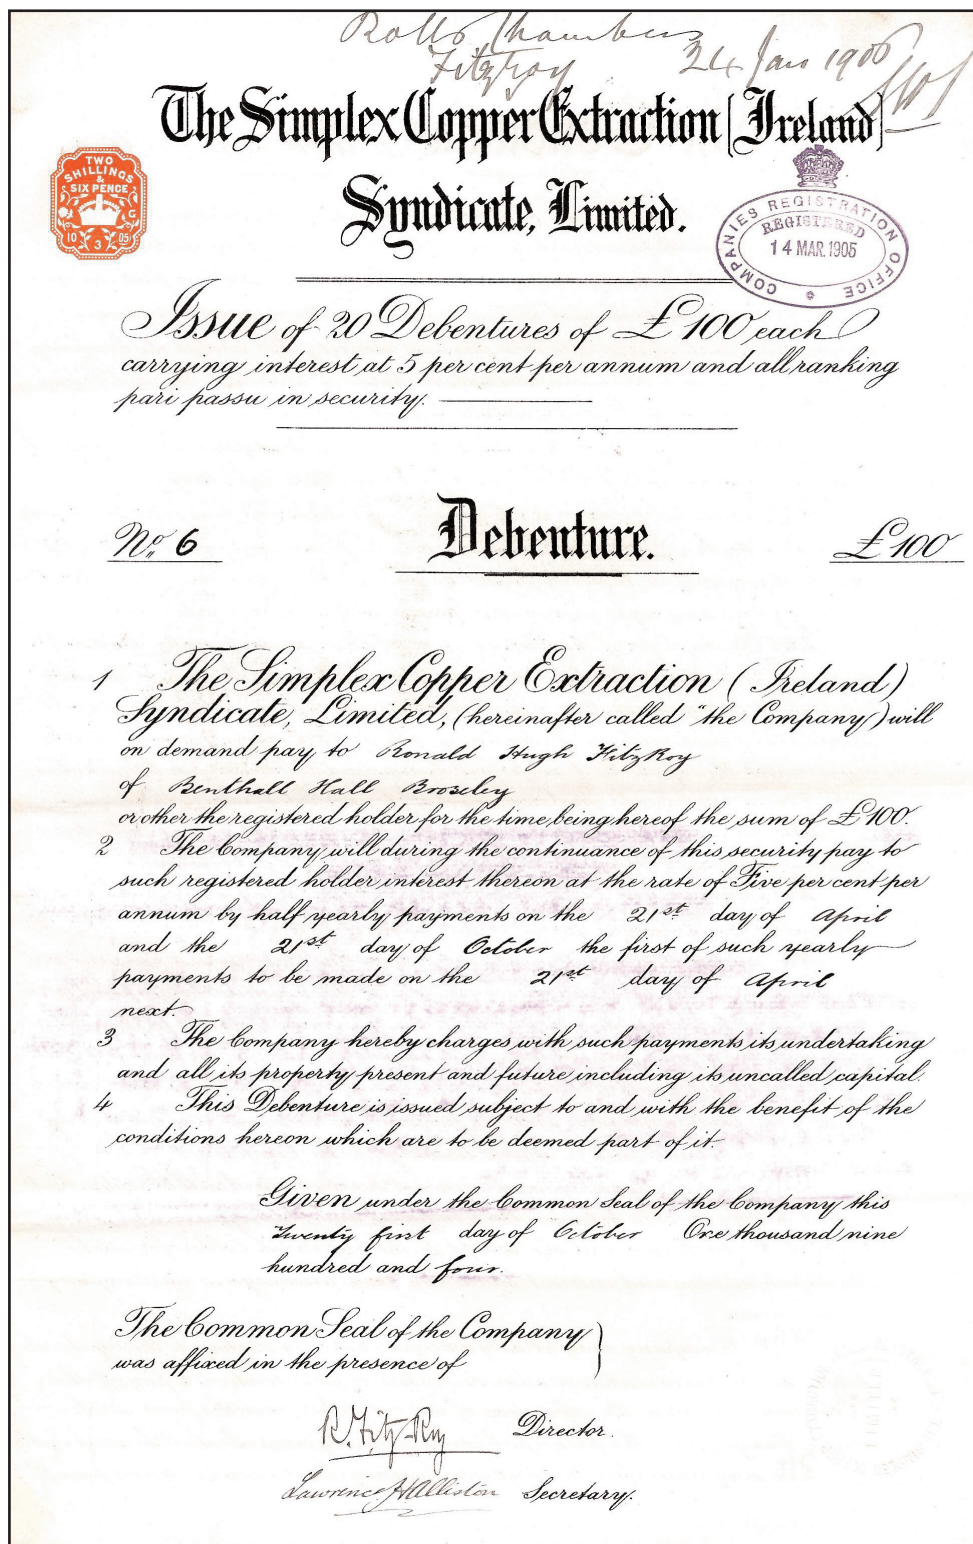 Rolls Chambers
FitzRoy 24 Jan 1906
The Simplex Copper Extraction (Ireland)
Syndicate, Limited.
TWO
SHILLINGS
&
SIX PENCE
G
10 3 05
COMPANIES REGISTRATION OFFICE
REGISTERED
14 MAR. 1905
Issue of 20 Debentures of £100 each
carrying interest at 5 per cent per annum and all ranking
pari passu in security.
No. 6 Debenture. £100
1 The Simplex Copper Extraction (Ireland)
Syndicate, Limited, (hereinafter called "the Company") will
on demand pay to Ronald Hugh FitzRoy
of Benthall Hall Broseley
or other the registered holder for the time being hereof the sum of £100.
2 The Company will during the continuance of this security pay to
such registered holder interest thereon at the rate of Five per cent per
annum by half yearly payments on the 21st day of April
and the 21st day of October the first of such yearly
payments to be made on the 21st day of April
next.
3 The Company hereby charges with such payments its undertaking
and all its property present and future including its uncalled capital.
4 This Debenture is issued subject to and with the benefit of the
conditions hereon which are to be deemed part of it.
Given under the Common Seal of the Company this
Twenty first day of October One thousand nine
hundred and four.
The Common Seal of the Company
was affixed in the presence of
R. FitzRoy Director.
Lawrence H Alliston Secretary.